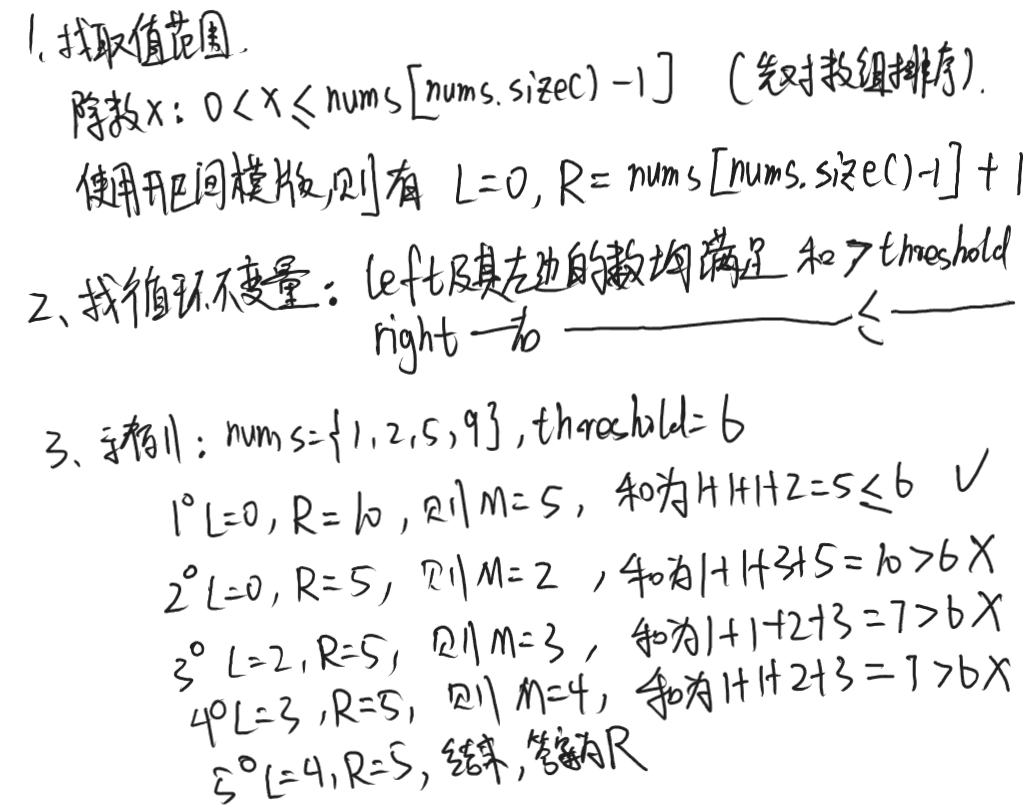 1. 找取值范围.
除数x: 0<x≤nums[nums.size()-1] (先对数组排序).
使用开区间模版,则有 L=0, R= nums[nums.size()-1]+1
2、找循环不变量: left及其左边的数均满足 和>threshold
right — 右 ———— ≤ ——
3、示例1: nums={1,2,5,9}, threshold=6
1° L=0, R=10, 则M=5, 和为1+1+1+2=5≤6 ✓
2° L=0, R=5, 则M=2, 和为1+1+3+5=10>6 X
3° L=2, R=5, 则M=3, 和为1+1+2+3=7>6 X
4° L=3, R=5, 则M=4, 和为1+1+2+3=7>6 X
5° L=4, R=5, 结束, 答案为R